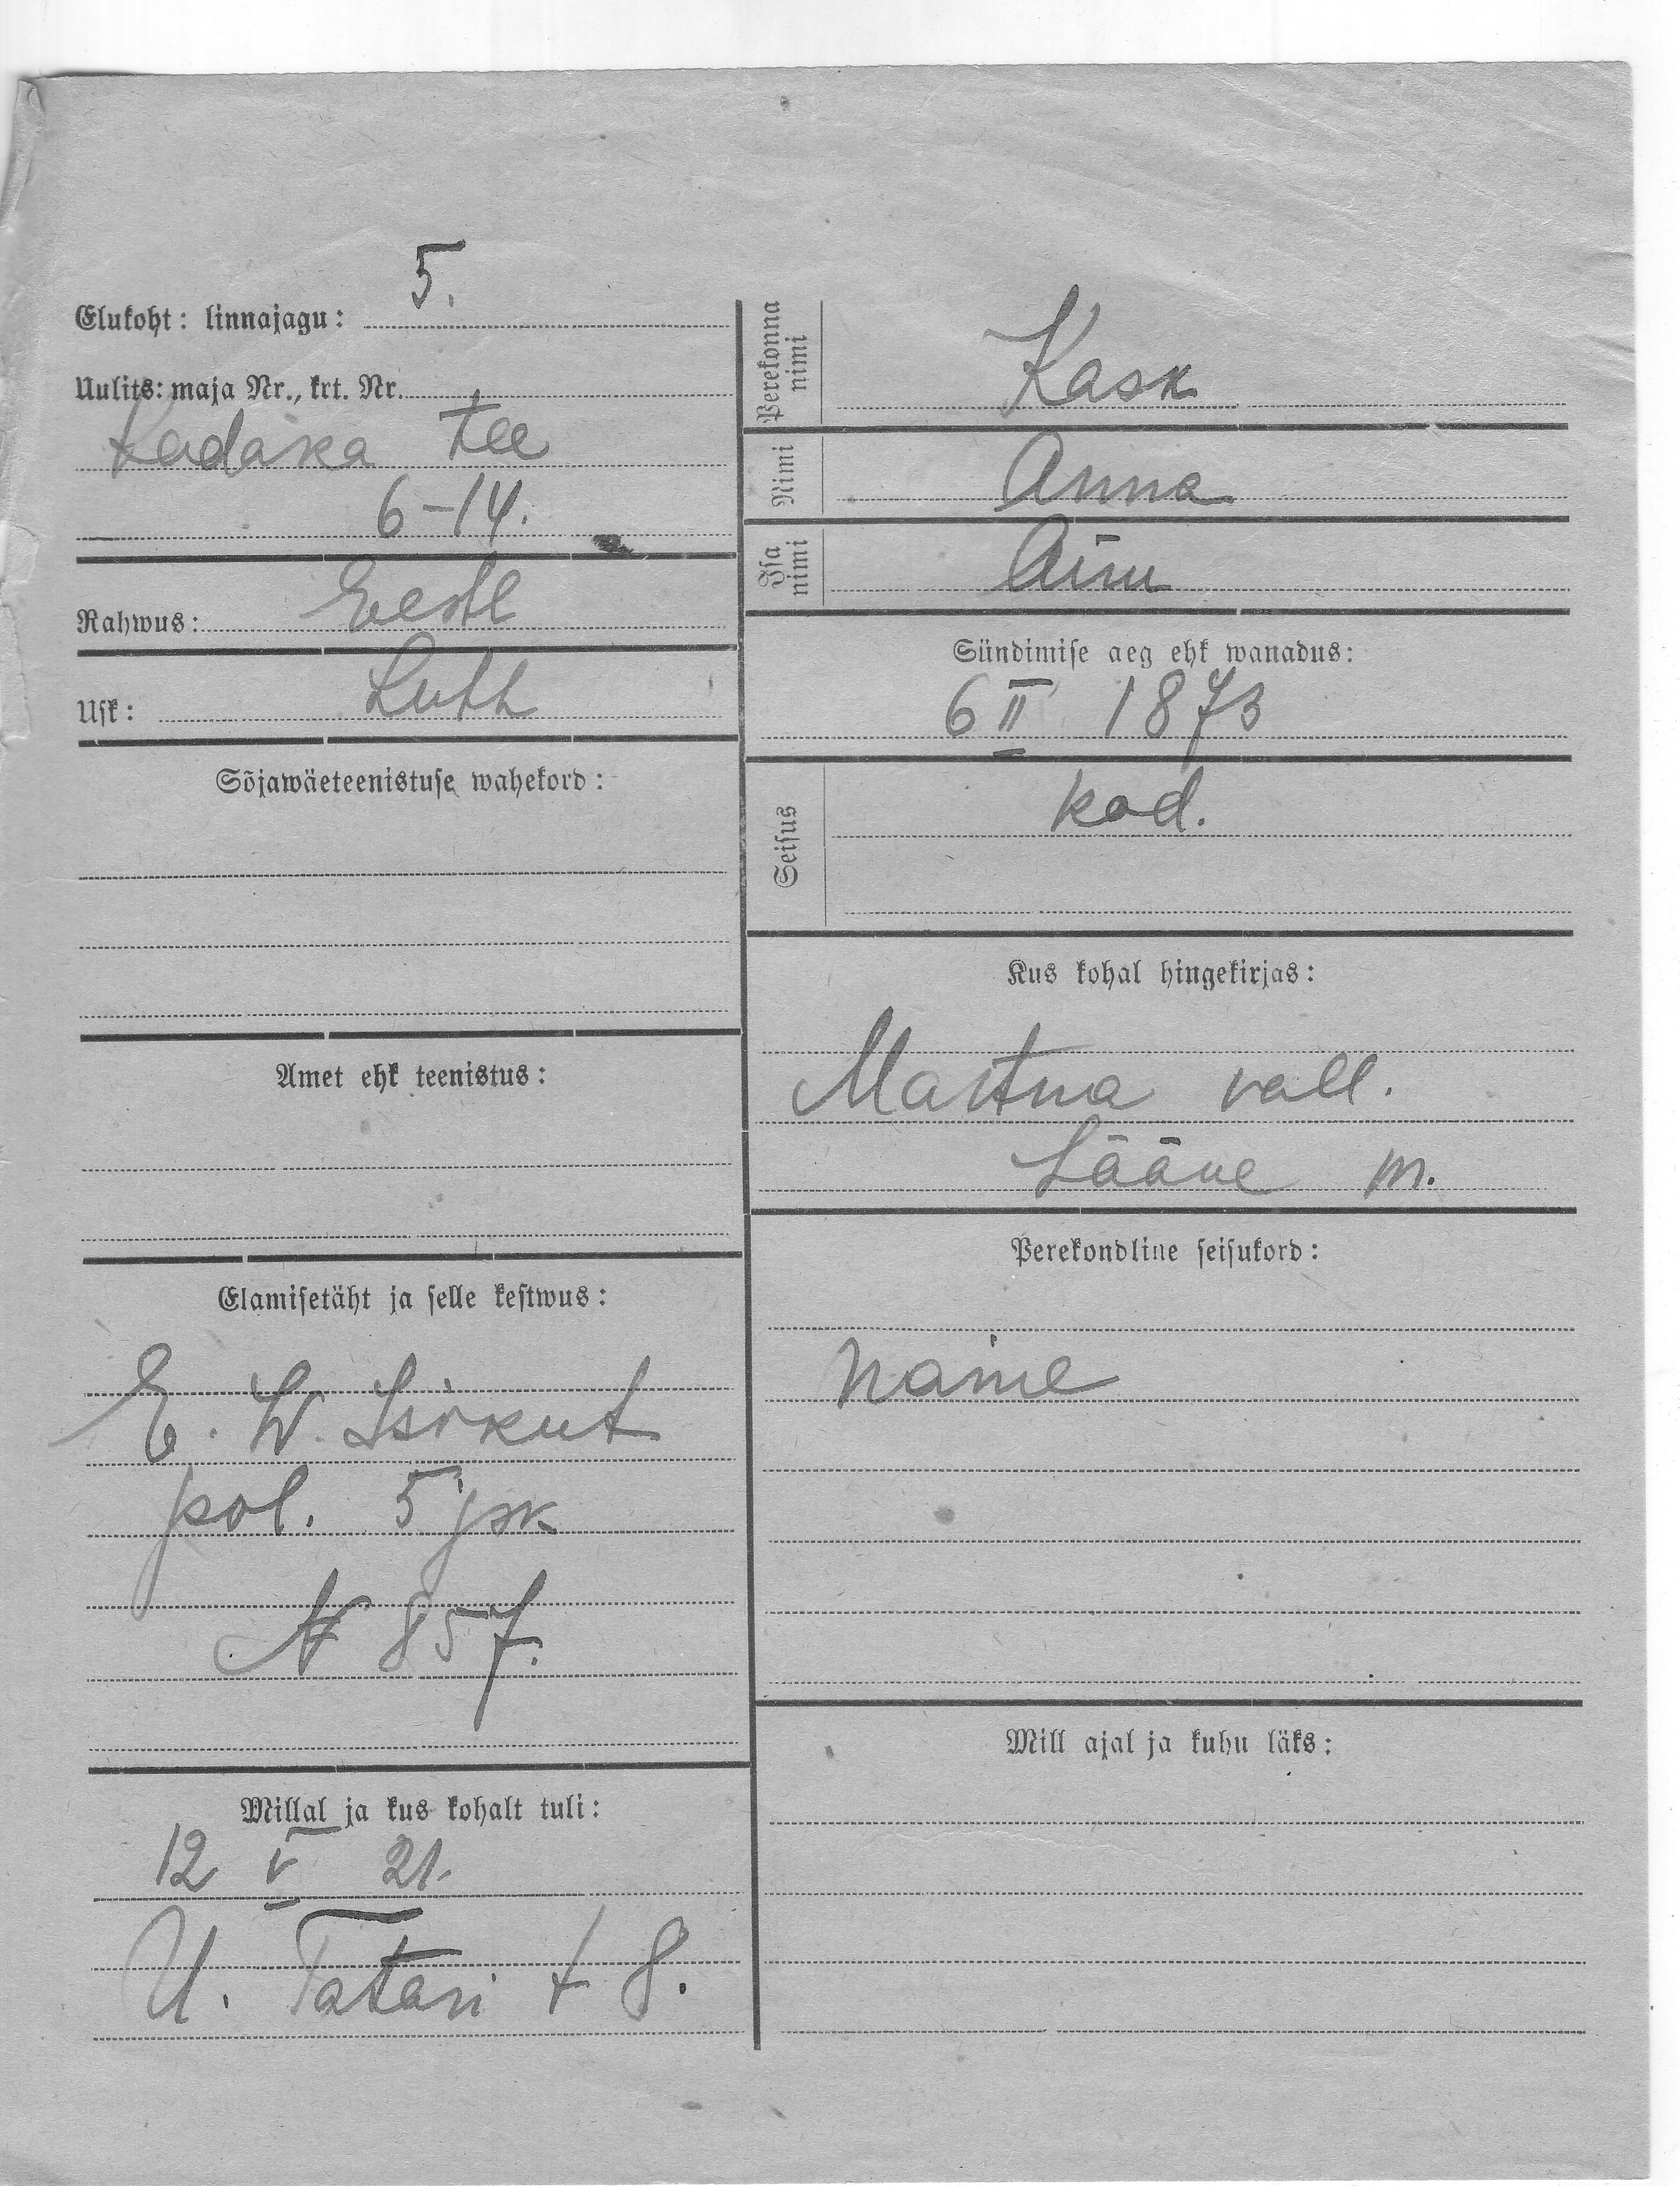 Elukoht: linnajagu: 5.
Uulits: maja Nr., krt. Nr.
Kadaka tee
6-14.
Rahwus: Eestl
Usk: Luth
Sõjawäeteenistuse wahekord:
Amet ehk teenistus:
Elamisetäht ja selle kestwus:
E. W. Isikut
pol. 5 jsk
N 857.
Millal ja kus kohalt tuli:
12 V 21.
U. Tatari 8.
Perekonna nimi
Kask
Nimi
Anna
Isa nimi
Sündimise aeg ehk wanadus:
6 II 1873
Seisus
kod.
Kus kohal hingekirjas:
Martna vall.
Lääne m.
Perekondline seisukord:
naine
Mill ajal ja kuhu läks: